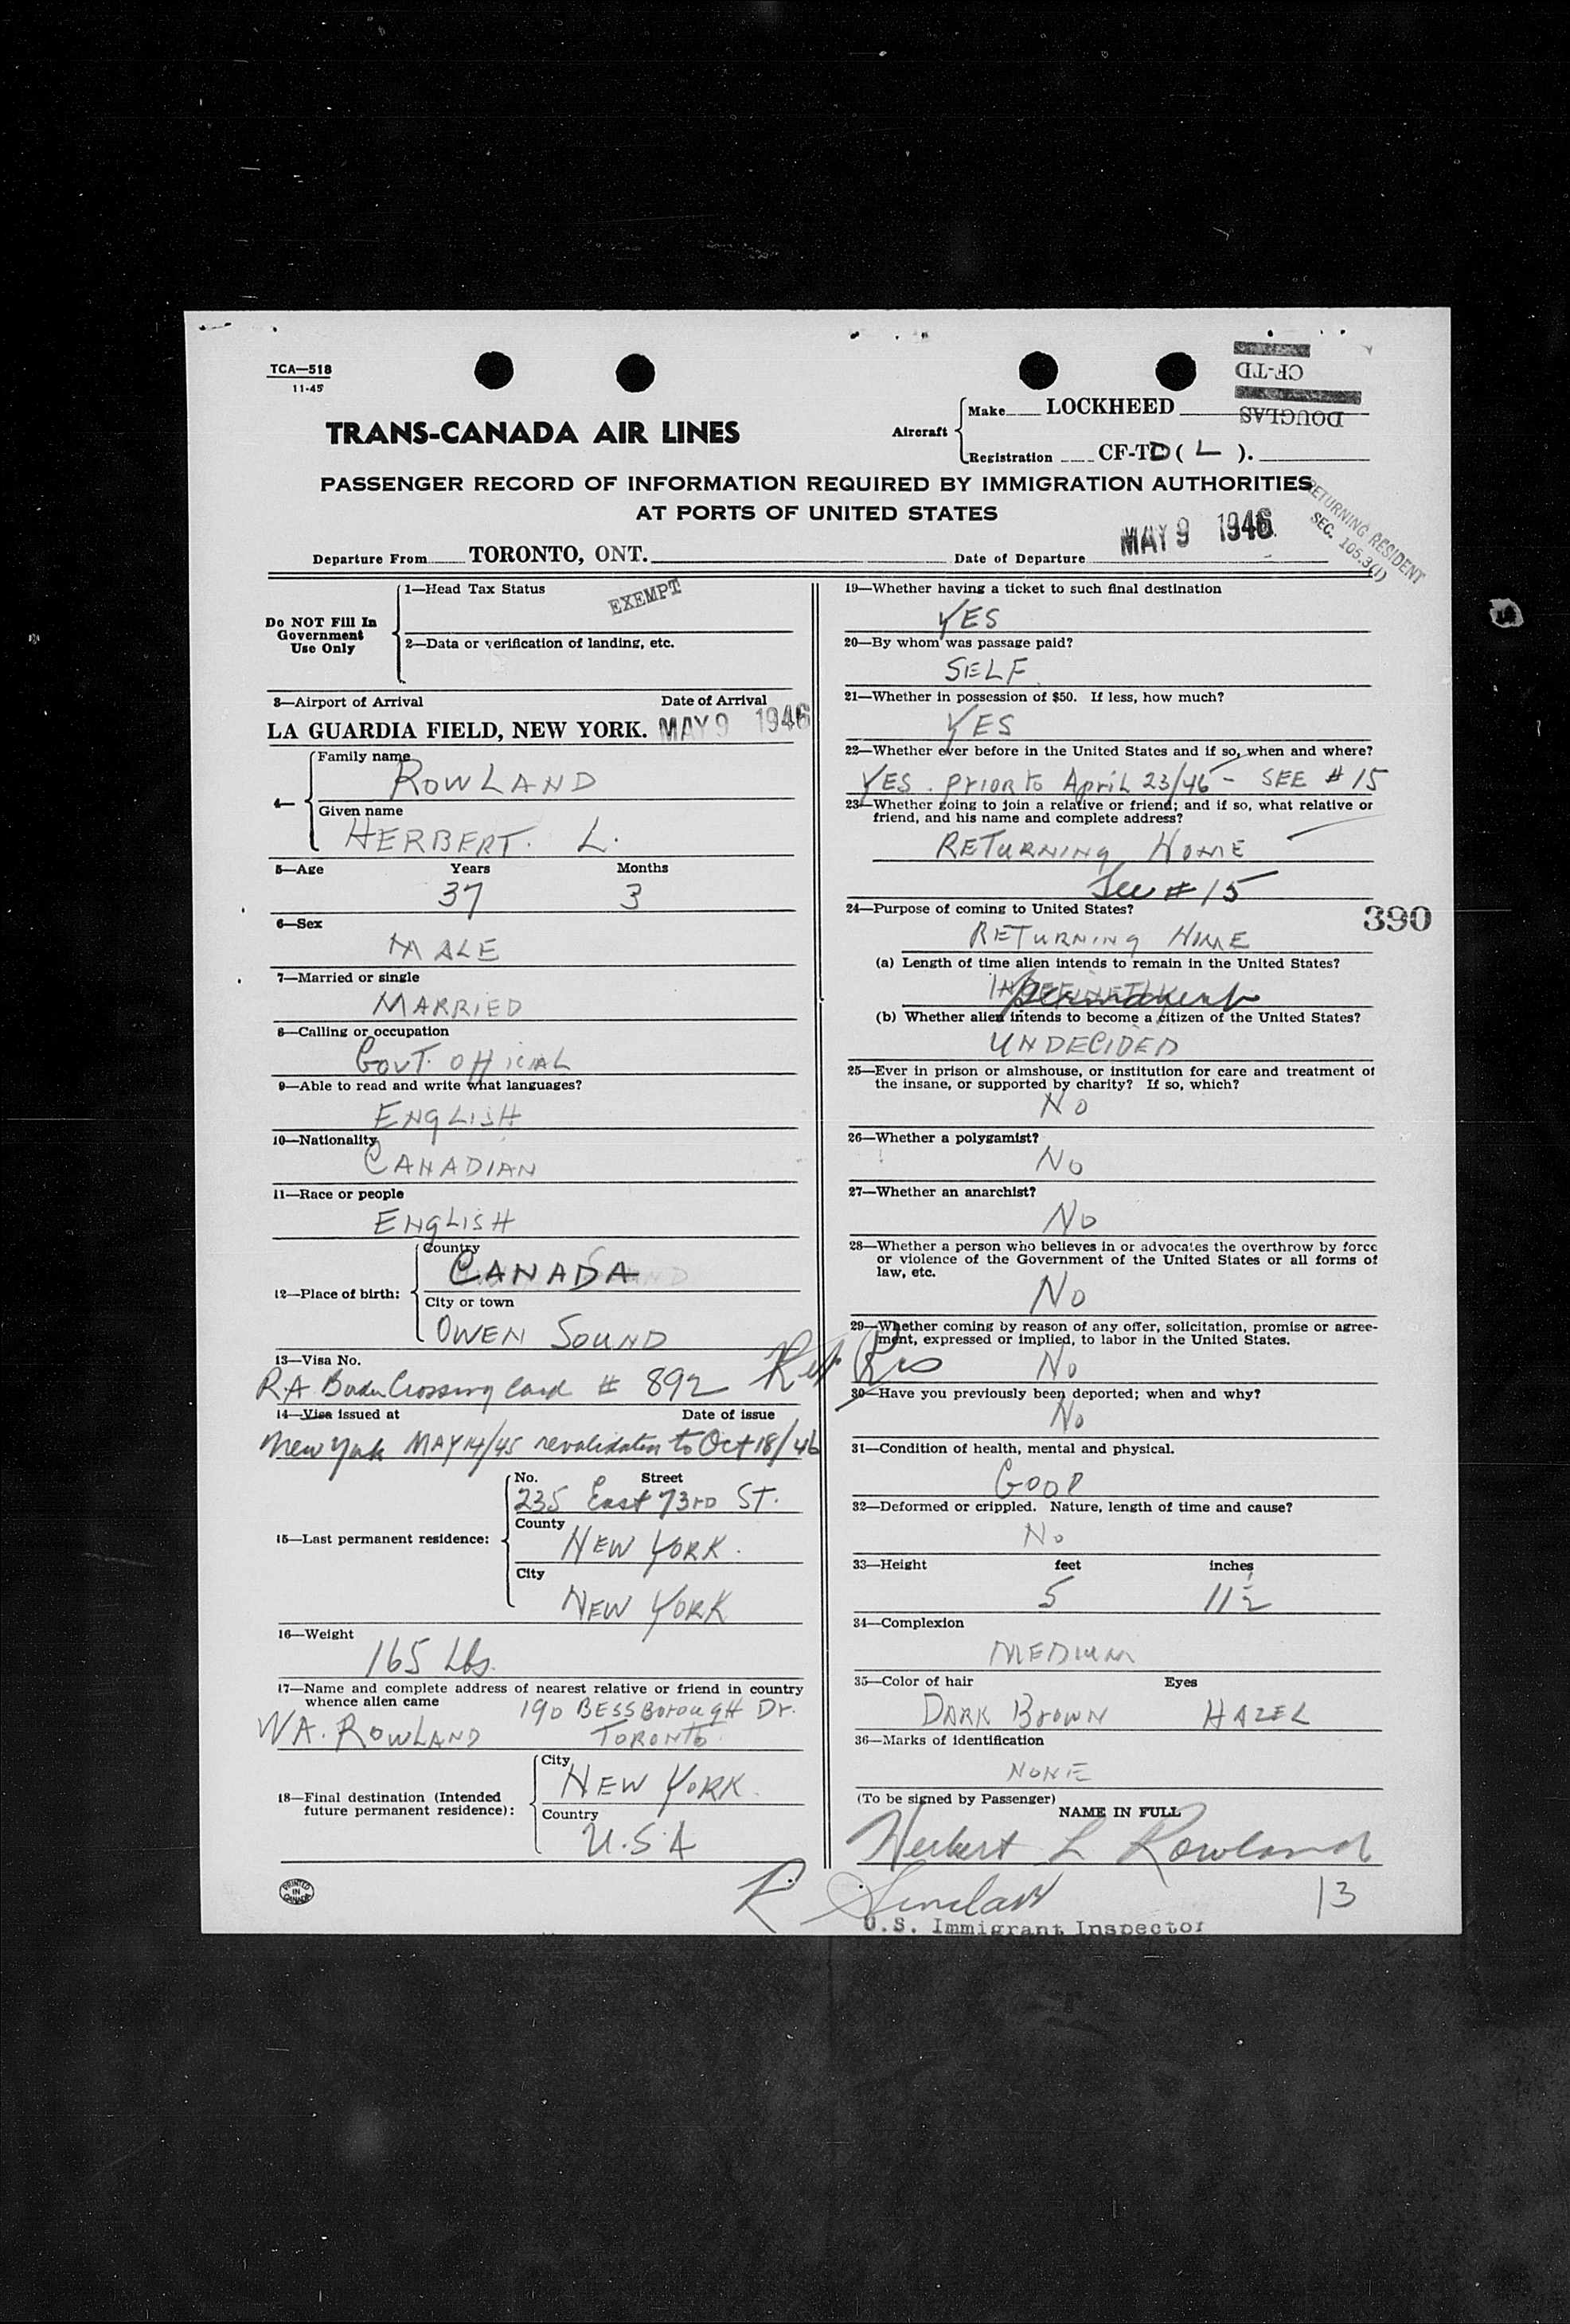 TCA—518
11-45
CF-TD
DOUGLAS
TRANS-CANADA AIR LINES
Aircraft
Make LOCKHEED
Registration CF-TD ( L ).
PASSENGER RECORD OF INFORMATION REQUIRED BY IMMIGRATION AUTHORITIES
AT PORTS OF UNITED STATES
RETURNING RESIDENT
SEC. 105.3(1)
Departure From TORONTO, ONT.
Date of Departure MAY 9 1946
Do NOT Fill In
Government
Use Only
1—Head Tax Status
EXEMPT
2—Data or verification of landing, etc.
3—Airport of Arrival Date of Arrival
LA GUARDIA FIELD, NEW YORK. MAY 9 1946
4—
Family name
ROWLAND
Given name
HERBERT. L.
5—Age Years Months
37 3
6—Sex
MALE
7—Married or single
MARRIED
8—Calling or occupation
GOVT. OFFICIAL
9—Able to read and write what languages?
ENGLISH
10—Nationality
CANADIAN
11—Race or people
ENGLISH
12—Place of birth:
Country
CANADA
City or town
OWEN SOUND
13—Visa No.
R.A. Border Crossing Card # 892 Ret Res
14—Visa issued at Date of issue
New York MAY 14/45 revalidation to Oct 18/46
15—Last permanent residence:
No. Street
235 East 73RD ST.
County
NEW YORK.
City
NEW YORK
16—Weight
165 Lbs.
17—Name and complete address of nearest relative or friend in country
whence alien came
190 BESSBOROUGH Dr.
W.A. ROWLAND TORONTO.
18—Final destination (Intended
future permanent residence):
City
NEW YORK.
Country
U.S.A
PRINTED
IN
CANADA
19—Whether having a ticket to such final destination
YES
20—By whom was passage paid?
SELF
21—Whether in possession of $50. If less, how much?
YES
22—Whether ever before in the United States and if so, when and where?
YES. prior to April 23/46 - SEE # 15
23—Whether going to join a relative or friend; and if so, what relative or
friend, and his name and complete address?
RETURNING HOME
See # 15
24—Purpose of coming to United States?
390
RETURNING HOME
(a) Length of time alien intends to remain in the United States?
Permanent
(b) Whether alien intends to become a citizen of the United States?
UNDECIDED
25—Ever in prison or almshouse, or institution for care and treatment of
the insane, or supported by charity? If so, which?
NO
26—Whether a polygamist?
NO
27—Whether an anarchist?
NO
28—Whether a person who believes in or advocates the overthrow by force
or violence of the Government of the United States or all forms of
law, etc.
NO
29—Whether coming by reason of any offer, solicitation, promise or agree-
ment, expressed or implied, to labor in the United States.
NO
30—Have you previously been deported; when and why?
No
31—Condition of health, mental and physical.
GOOD
32—Deformed or crippled. Nature, length of time and cause?
No
33—Height feet inches
5 11½
34—Complexion
MEDIUM
35—Color of hair Eyes
DARK BROWN HAZEL
36—Marks of identification
NONE
(To be signed by Passenger)
NAME IN FULL
Herbert L Rowland
R. Sinclair 13
U.S. Immigrant Inspector